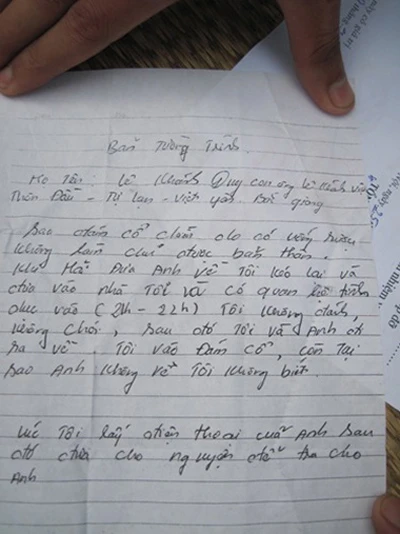 Bản Tường Trình
Họ Tên: Lê Khánh Duy con ông Lê
Thôn Đầu - Tự Lạn - Việt Yên. Bắc Giang
Sau đám cổ chăm do có uống rượu
Không làm chủ được bản thân.
Khi Hà Đưa Anh về Tôi kéo lại và
đưa vào nhà Tôi và có quan hệ tình
dục vào (21h - 22h) Tôi Không đánh,
Chói, sau đó Tôi và Anh đi
ra về. Tôi vào Đám cổ, còn tại
sao Anh không về Tôi không biết
Lúc Tôi lấy điện thoại cuả Anh sau
đó đưa cho nguyện để trả cho
Anh